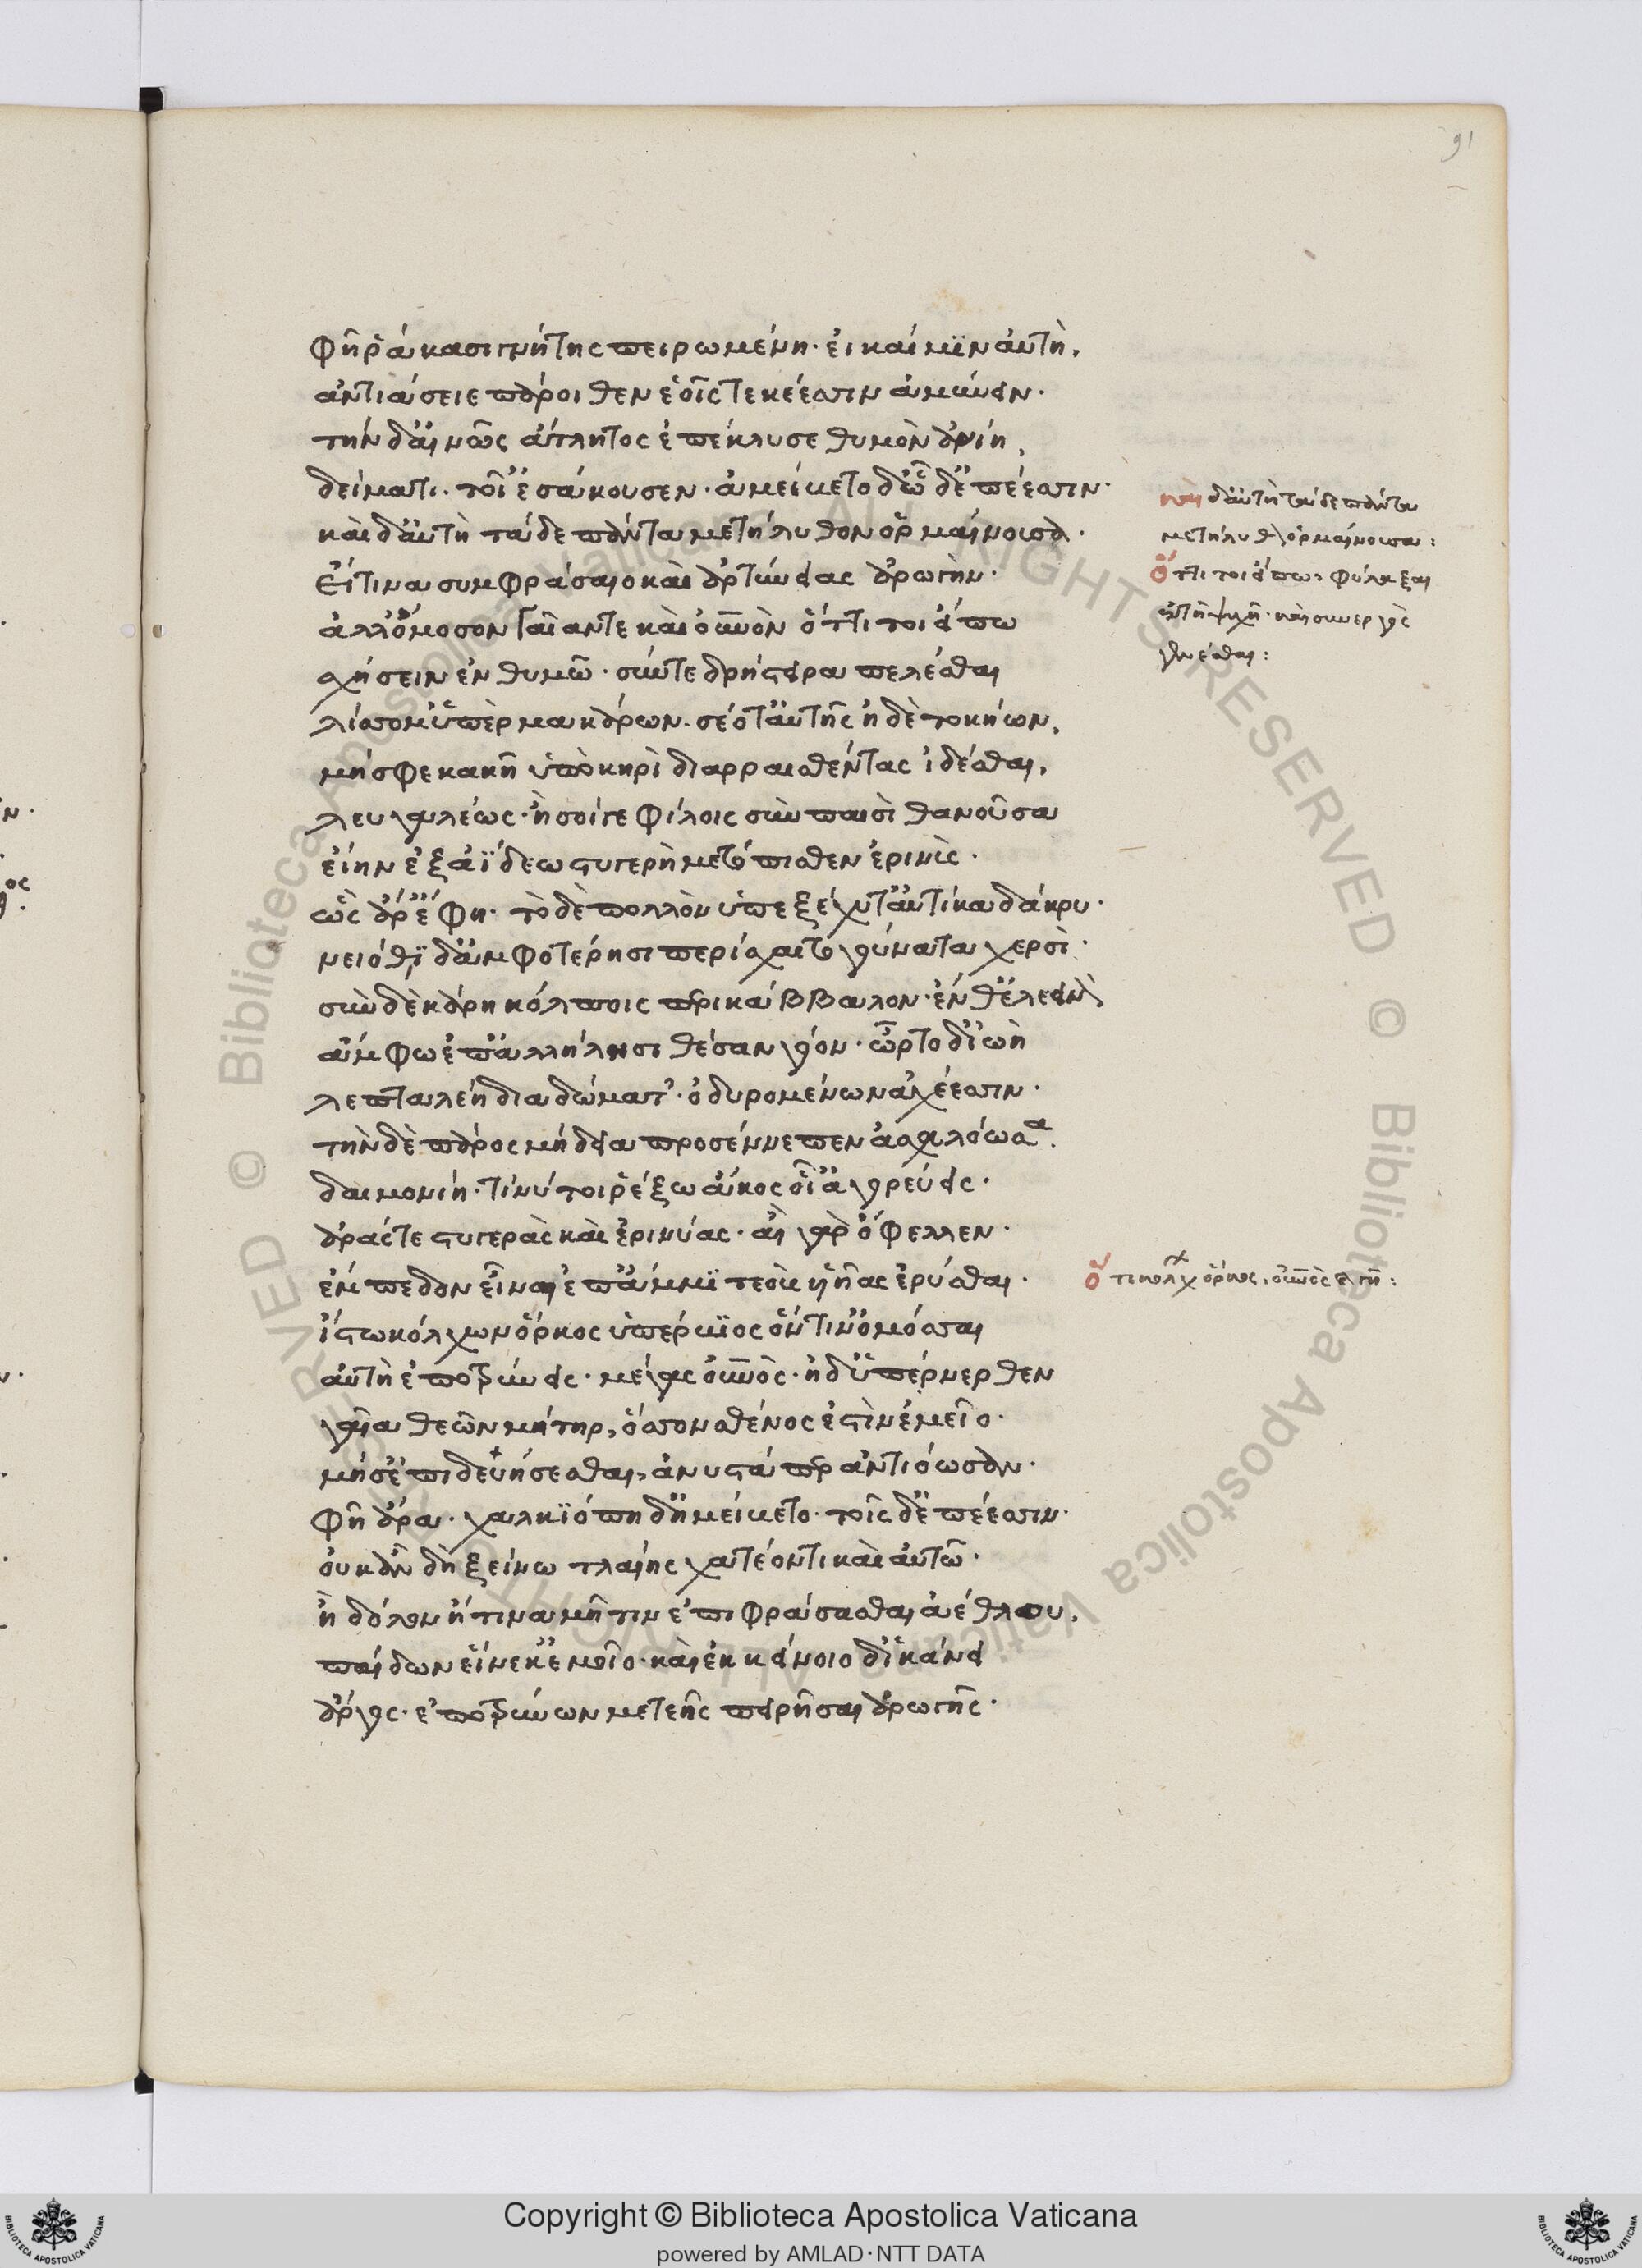 φῆ ῥά κασιγνήτης πειρωμένη· ἐι καί μϊν ἀυτὴ,
ἀντιάσειε πάροιθεν ἑοῖς τεκέεσσιν ἀμύνειν·
τὴν δ' αἰνῶς ἄτλητος ἐπέκλυσε θυμὸν ἀνίη,
δείματι. τοῖ' ἐσάκουσεν· ἀμείβετο δ' ὧδ' ἐπέεσσιν·
καὶ δ' ἀυτὴ τάδε πάντα μετήλυθον ὁρμαίνουσα·
Ἐί τινα συμφράσαιο καὶ ἀρτύνειας ἀρωγὴν·
ἀλλ' ὄμοσον γαῖαν τε καὶ οὐνὸν ὅττι τοι εἴπω
σχήσειν ἐν θυμῶ· σύν τε δρήστειρα πελέσθαι
λίσσομ' ὑπὲρ μακάρων. σέο τ' ἀυτῆς ἠδὲ τοκήων,
μή σφε κακῆ ὑπὸ κηρὶ διαρραισθέντας ἰδέσθαι,
λευγαλέως· ἢ σοί γε φίλοις σὺν παισὶ θανοῦσα
ἐίην ἐξ ἀΐδεω στυγερὴ μετόπισθεν ἐρινὶς·
ὣς ἄρ' ἔφη· τὸ δὲ πολλὸν ὑπεξέχυτ' ἀυτίκα δάκρυ·
νειόθϊ δ' ἀμφοτέρησι περίσχετο γούνατα χερσὶ·
σὺν δὲ κάρη κόλποις περικάββαλον· ἔνθ' ἐλεεινὰ
ἄμφω ἐπ' ἀλλήλησι θέσαν γόον· ὦρτο δ' ἰωὴ
λεπταλέη δια δώματ'· ὀδυρομένων ἀχέεσσιν·
τὴν δὲ πάρος μήδεια προσέννεπεν ἀσχαλόωσα.
δαιμονίη· τί νύ τοι ῥέξω ἄκος οἷ' ἀγορεύεις·
ἀράς τε στυγερὰς καὶ ἐρινύας· ἂι γὰρ ὄφελλεν·
ἔμπεδον εἶναι ἐπ' ἄμμϊ τεοὺς υἷῆας ἐρύσθαι·
ἴστω κόλχων ὅρκος ὑπέρβιος ὅντιν' ὀμόσσαι
ἀυτὴ ἐποτρύνεις· μέγας οὐνὸς· ἠδ' ὑπένερθεν
γαῖα θεῶν μήτηρ, ὅσσον σθένος ἐστὶν ἐμεῖο·
μή σ' ἐπιδευήσεσθαι, ἀνυστά περ ἀντιόωσαν·
φῆ ἄρα· χαλκϊόπη δ' ἠμείβετο· τοῖς δ' ἐπέεσσιν·
ὀυκ ἂν δὴ ξείνω τλαίης χατέοντι καὶ ἀυτῶ·
ἢ δόλον ἤ τινα μῆτιν ἐπιφράσασθαι ἀέθλου,
παίδων εἵνεκ' ἐμεῖο· καὶ ἐκ κείνοιο δ' ἱκάνει
ἄργος· ἐποτρύνων με τεῆς πειρῆσαι ἀρωγῆς·
καὶ δ' ἀυτὴ τάδε πάντα
μετήλυθον ὁρμαίνουσα:
ὅττι τοι εἴπω, φύλαξαι
ἐν τῆ ψυχῆ· καὶ συνεργὸς
γενέσθαι:
ὅτι κολχ ὅρκος, οὐνὸς κ γῆ:
91
Copyright © Biblioteca Apostolica Vaticana
powered by AMLAD·NTT DATA
© Biblioteca Apostolica Vaticana ALL RIGHTS RESERVED
© Biblioteca Apostolica Vaticana ALL RIGHTS RESERVED